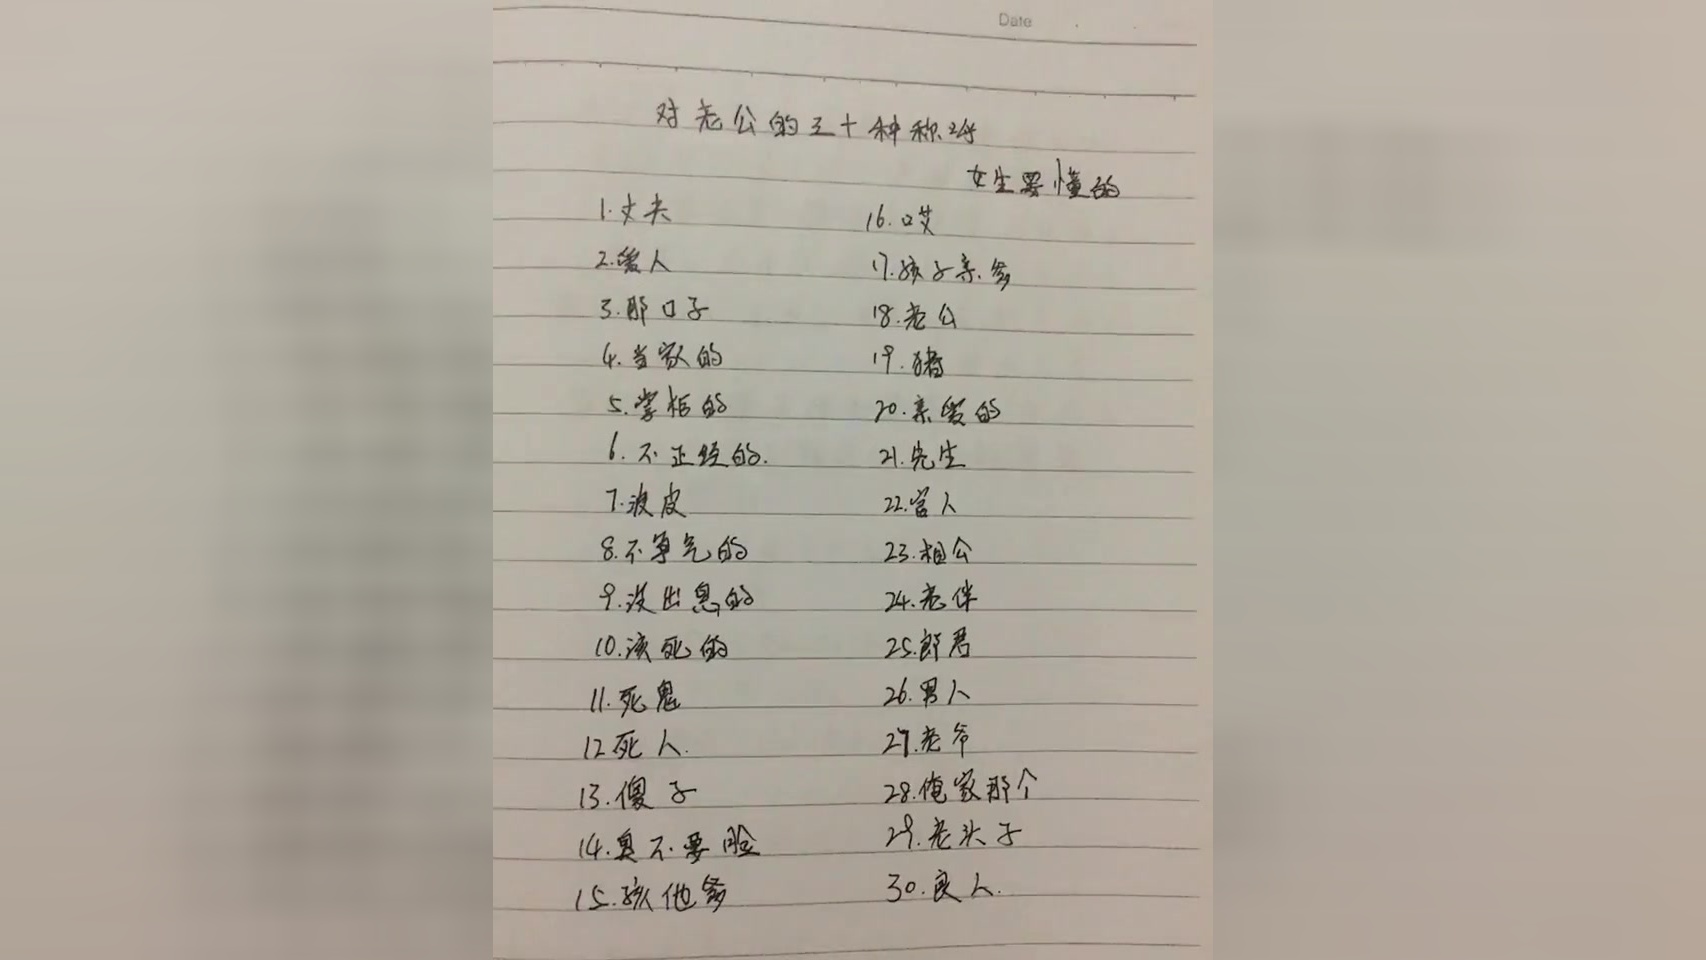 Date
对老公的三十种称呼
女生要懂的
1.丈夫
2.爱人
3.那口子
4.当家的
5.掌柜的
6.不正经的.
7.泼皮
8.不争气的
9.没出息的
10.该死的
11.死鬼
12死人.
13.傻子
14.臭不要脸
15.孩他爹
16.哎
17.孩子亲爹
18.老公
19.猪
20.亲爱的
21.先生
22.官人
23.相公
24.老伴
25.郎君
26.男人
27.老爷
28.俺家那个
29.老头子
30.良人.